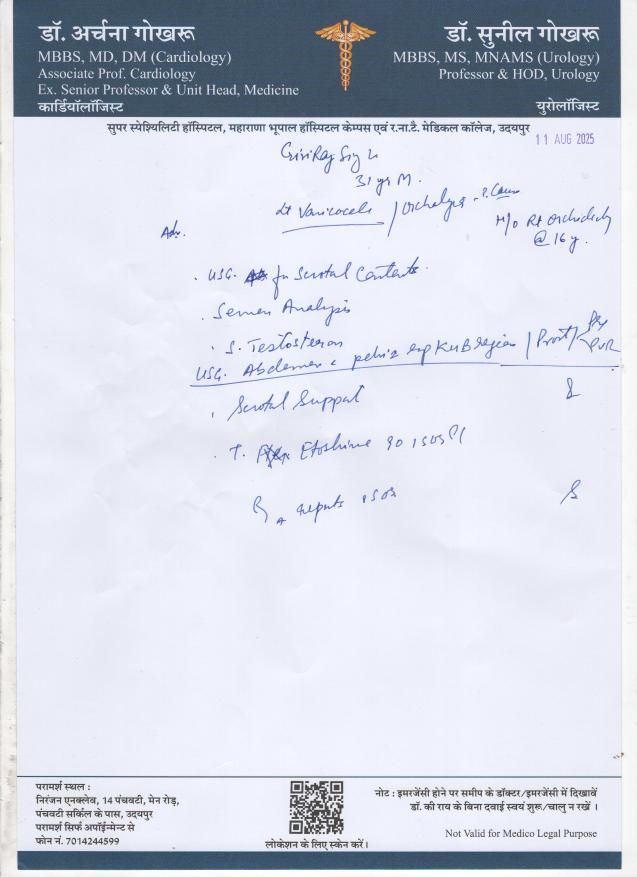 डॉ. अर्चना गोखरू
MBBS, MD, DM (Cardiology)
Associate Prof. Cardiology
Ex. Senior Professor & Unit Head, Medicine
कार्डियॉलॉजिस्ट
डॉ. सुनील गोखरू
MBBS, MS, MNAMS (Urology)
Professor & HOD, Urology
युरोलॉजिस्ट
सुपर स्पेश्यिलिटी हॉस्पिटल, महाराणा भूपाल हॉस्पिटल केम्पस एवं र.ना.टै. मेडिकल कॉलेज, उदयपुर
11 AUG 2025
31 yr M.
Lt Varicocele
H/O Rt Orchidectomy
@ 16 y.
Adv.
USG. for Scrotal Contents.
Semen Analysis
S. Testosteron
USG. Abdomen c pelvis KUB region
Scrotal Support
T. 90
परामर्श स्थल :
निरंजन एनक्लेव, 14 पंचवटी, मेन रोड़,
पंचवटी सर्किल के पास, उदयपुर
परामर्श सिर्फ अपॉईन्मेन्ट से
फोन नं. 7014244599
लोकेशन के लिए स्केन करें।
नोट : इमरजेंसी होने पर समीप के डॉक्टर/इमरजेंसी में दिखावें
डॉ. की राय के बिना दवाई स्वयं शुरू/चालु न रखें ।
Not Valid for Medico Legal Purpose